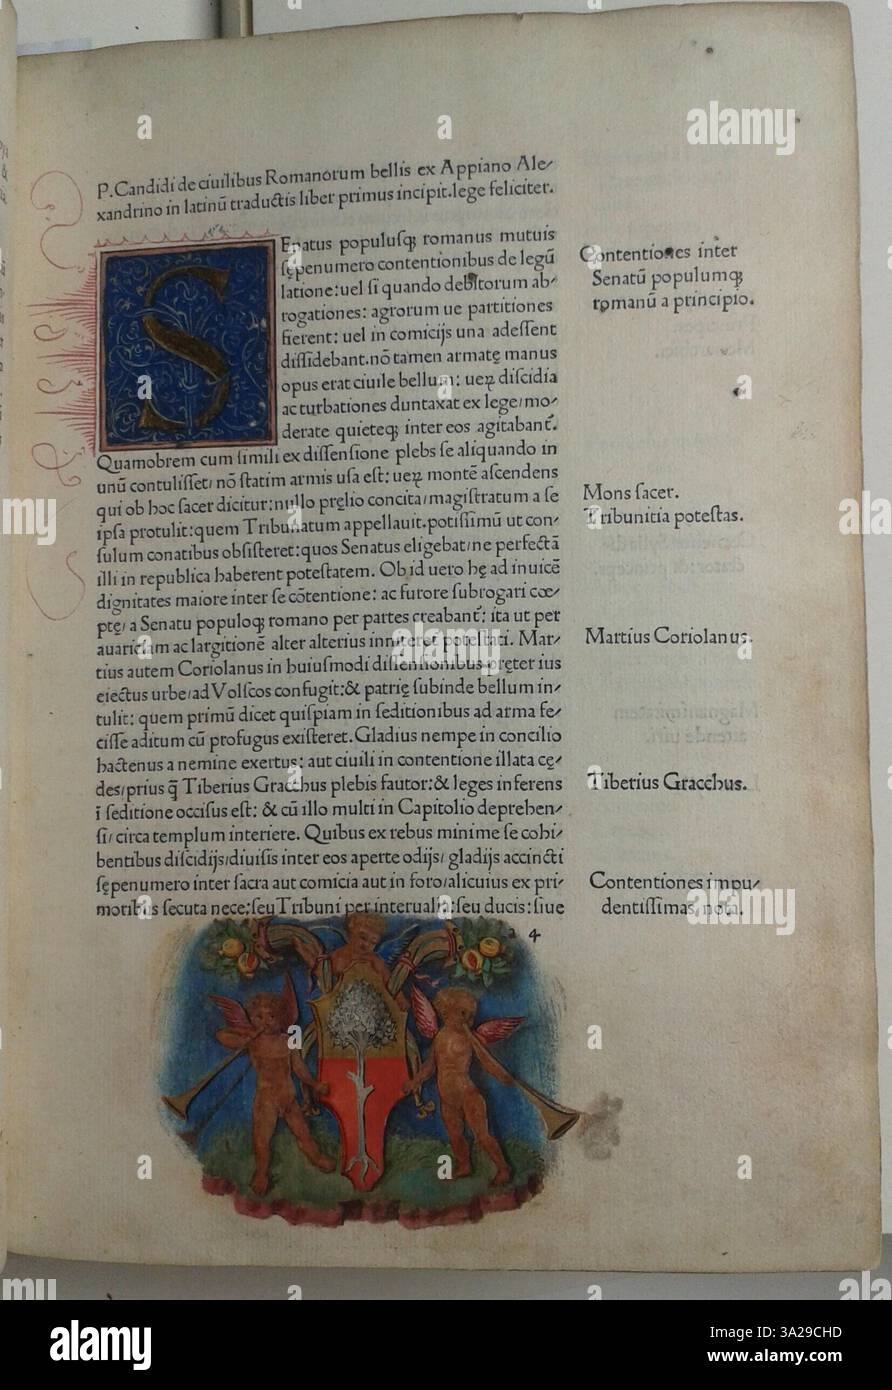 P. Candidi de ciuilibus Romanorum bellis ex Appiano Ale/
xandrino in latinũ traductis liber primus incipit. lege feliciter.
SEnatus populusq; romanus mutuis
sępenumero contentionibus de legũ
latione: uel si quando debitorum ab/
rogationes: agrorum ue partitiones
fierent: uel in comicijs una adessent
dissidebant. nõ tamen armatę manus
opus erat ciuile bellum: ueꝝ discidia
ac turbationes duntaxat ex lege/mo/
derate quieteq; inter eos agitabant̃.
Quamobrem cum simili ex dissensione plebs se aliquando in
unũ contulisset/ nõ statim armis usa est: ueꝝ montẽ ascendens
qui ob hoc sacer dicitur: nullo pręlio concita/ magistratum a se
ipsa protulit: quem Tribunatum appellauit. potissimũ ut con/
sulum conatibus obsisteret: quos Senatus eligebat/ne perfectã
illi in republica haberent potestatem. Ob id uero hę ad inuicẽ
dignitates maiore inter se cõtentione: ac furore subrogari coe/
ptę/ a Senatu populoq; romano per partes creabant̃: ita ut per
auariciam ac largitionẽ alter alterius inniteret potestati. Mar/
tius autem Coriolanus in huiusmodi dissensionibus pręter ius
eiectus urbe/ad Volscos confugit: & patrię subinde bellum in/
tulit: quem primũ dicet quispiam in seditionibus ad arma fe/
cisse aditum cũ profugus existeret. Gladius nempe in concilio
hactenus a nemine exertus: aut ciuili in contentione illata cę/
des/prius q̃ Tiberius Gracchus plebis fautor: & leges inferens
ĩ seditione occisus est: & cũ illo multi in Capitolio deprehen/
si/ circa templum interiere. Quibus ex rebus minime se cohi/
bentibus discidijs/diuisis inter eos aperte odijs/ gladijs accincti
sępenumero inter sacra aut comicia aut in foro/alicuius ex pri/
moribus secuta nece: seu Tribuni per interualla: seu ducis: siue
a 4
Contentiones inter
Senatũ populumq;
romanũ a principio.
Mons sacer.
Tribunitia potestas.
Martius Coriolanus.
Tiberius Gracchus.
Contentiones impu/
dentissimas/ nota.
alamy
Image ID: 3A29CHD
www.alamy.com